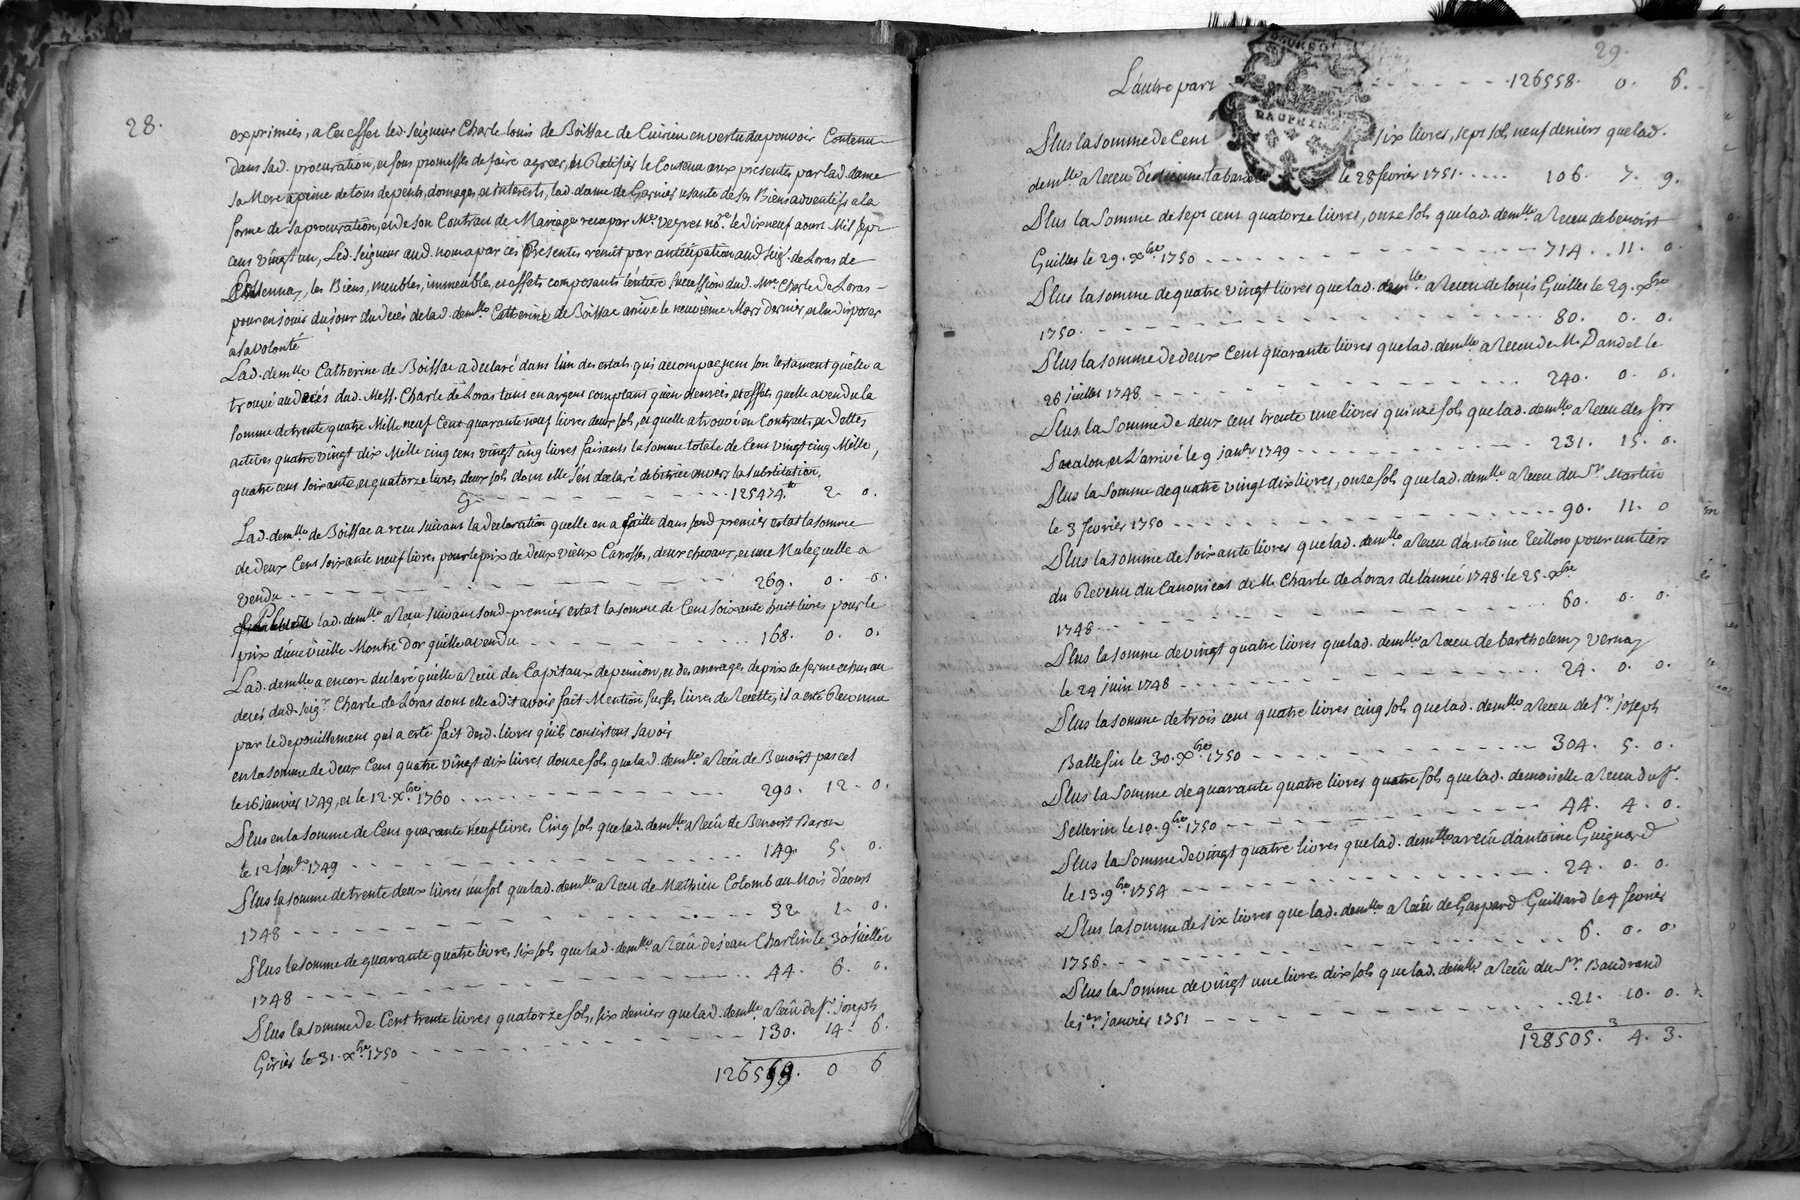 28.
exprimées, a Cet effet led. seigneur Charle louis de Boissac de Cuirieu en vertu du pouvoir Contenu
dans lad. procuration, et sous promesses de faire agreer, et Ratifier le Contenu aux présentes par lad. dame
sa Mere a peine de tous depents, domages, et interests, lad. dame de Garnier usante de ses Biens adventifs a la
forme de sa procuration, et de son Contrat de Mariage recu par Me. Veyret nore. le dix neuf aoust Mil sept
cens vingt un, Led. seigneur aud. nom a par ces présentes remit par anticipation aud. seigr. de Loras de
Pollienas, les Biens, meubles, immeuble, et effets composants l'entiere succession dud. Mre. Charle de Loras -
pour en jouir du jour du decés de lad. demlle. Catherine de Boissac arrivé le neuvieme Mars dernier, et en disposer
a sa volonté
Lad. demlle. Catherine de Boissac a declaré dans l'un des estats qui accompagnent son testament qu'elle a
trouvé au decés dud. Mess. Charle de Loras tant en argent comptant qu'en denrées, et effets quelle a vendu la
somme de trente quatre Mille neuf Cent quarante neuf livres deux sols, et quelle a trouvé en Contracts, et dettes
actives quatre vingt dix Mille cinq cens vingt cinq livres faisants la somme totale de Cent vingt cinq Mille,
quatre cent soixante, et quatorze livres deux sols dont elle s'en declaré debitrice envers la substitution,
Cy - - - - - - - - - - 125474.lt 2. 0.
Lad. demlle. de Boissac a recu suivant la declaration quelle en a faitte dans sond. premier estat la somme
de deux Cent soixante neuf livres pour le prix de deux vieux Carosses, deux chevaux, et une Mule quelle a
vendu - - - - - - - - - - 269. 0. 0.
lad. demlle. a Recu suivant sond. premier estat la somme de Cent soixante huit livres pour le
prix d'une vieille Montre d'or qu'elle a vendu - - - - - - 168. 0. 0.
Lad. demlle. a encore declaré qu'elle a Recu des Capitaux de pension, et des arrerages de prix de ferme echus au
decés dud. seigr. Charle de Loras dont elle a dit avoir fait Mention sur ses livres de Recette, il a esté Reconnu
par le depouillement qui a esté fait desd. livres qu'ils consistent savoir
en la somme de deux Cent quatre vingt dix livres douze sols que lad. demlle. a Recu de Benoist pascal
le 16 janvier 1749, et le 12. xbre. 1760 - - - - - - - - 290. 12. 0.
Plus en la somme de Cent quarante neuf livres Cinq sols que lad. demlle. a Recu de Benoist Baron
le 12 janer. 1749 - - - - - - - - - - 149 5. 0.
Plus la somme de trente deux livres un sol que lad. demlle. a Recu de Mathieu Colomb au Mois d'aoust
1748 - - - - - - - - - - 32 1. 0.
Plus la somme de quarante quatre livres six sols que lad. demlle. a Recu de jean Charlin le 30 juillet
1748 - - - - - - - - - - 44. 6. 0.
Plus la somme de Cent trente livres quatorze sols, six deniers que lad. demlle. a Recu de sr. joseph
Girier le 31. xbre. 1750 - - - - - - - - 130. 14. 6.
126559. 0 6
29.
L'autre part - - - - - 126558. 0. 6.
DAUPHINE
Plus la somme de Cent six livres, sept sols neuf deniers que lad.
demlle. a Recu le 28 fevrier 1751. - - - - 106. 7. 9.
Plus la somme de sept cent quatorze livres, onze sols que lad. demlle. a Recu de benoist
Guilles le 29. xbre. 1750 - - - - - - - - 714. 11. 0.
Plus la somme de quatre vingt livres que lad. demlle. a Recu de louis Guilles le 29. xbre
1750. - - - - - - - - - - 80. 0. 0.
Plus la somme de deux Cent quarante livres que lad. demlle. a Recu de Mr. Dandel le
26 juillet 1748 - - - - - - - - - - 240. 0. 0.
Plus la somme de deux cent trente une livres quinze sols que lad. demlle. a Recu des srs
et L'arrivé le 9 janer. 1749 - - - - - - - - 231. 15. 0.
Plus la somme de quatre vingt dix livres, onze sols que lad. demlle. a Recu du Sr. Martin
le 3 fevrier 1750 - - - - - - - - - - 90. 11. 0
Plus la somme de soixante livres que lad. demlle. a Recu d'antoine Teillon pour un tiers
du Revenu du Canonicat de Mr. Charle de Loras de l'année 1748. le 25. xbre
1748 - - - - - - - - - - 60. 0. 0.
Plus la somme de vingt quatre livres que lad. demlle. a Recu de barthelemy vernay
le 24 juin 1748 - - - - - - - - - - 24. 0. 0.
Plus la somme de trois cent quatre livres cinq sols que lad. demlle. a Recu de sr. joseph
Ballefin le 30. xbre. 1750 - - - - - - - - 304. 5. 0.
Plus la somme de quarante quatre livres quatre sols que lad. demoiselle a Recu du sr.
Pellerin le 10. 9bre. 1750 - - - - - - - - 44. 4. 0.
Plus la somme de vingt quatre livres que lad. demlle. a recu d'antoine Guignard
le 13. 9bre. 1754 - - - - - - - - - - 24. 0. 0.
Plus la somme de six livres que lad. demlle. a Recu de Gaspard Guillard le 4 fevrier
1756. - - - - - - - - - - 6. 0. 0.
Plus la somme de vingt une livres dix sols que lad. demlle. a Recu du Sr. Baudrand
le 1er. janvier 1751 - - - - - - - - - - 21. 10. 0.
128505. 4. 3.